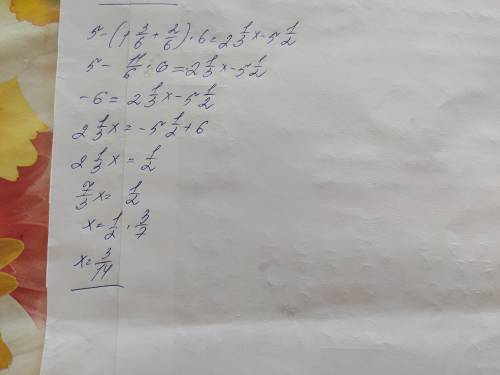 5-(1 3/6+2/6)·6=2 1/3x-5 1/2
5-11/6·6=2 1/3x-5 1/2
-6=2 1/3x-5 1/2
2 1/3x=-5 1/2+6
2 1/3x=1/2
7/3x=1/2
x=1/2·3/7
x=3/14